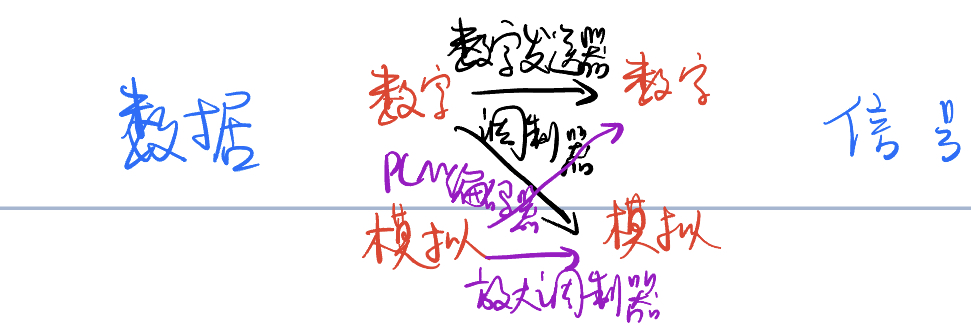 数字发送器
数字
数字
数据
调制器
信号
PCM编码器
模拟
模拟
放大调制器